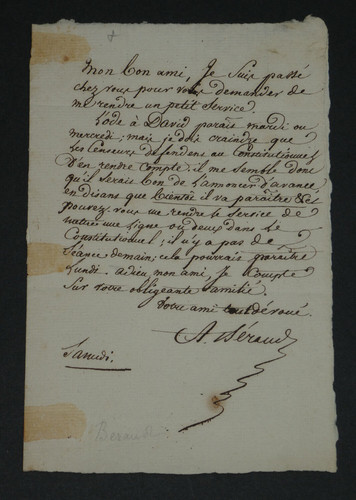 Mon bon ami, Je suis passé
chez vous pour vous demander de
me rendre un petit service.
L'ode à David paraît mardi ou
mercredi; mais je dois craindre que
les Censeurs défendent au Constitutionnel
d'en rendre compte. il me semble donc
qu'il serait bon de l'annoncer d'avance
en disant que bientôt il va paraître &c
pouvez-vous me rendre le service de
mettre une ligne ou deux dans le
Constitutionnel; il n'y a pas de
séance demain; cela pourrait paraître
lundi. adieu, mon ami, je compte
sur votre obligeante amitié
Votre ami tout dévoué.
A. Béraud
Samedi.
Beraud